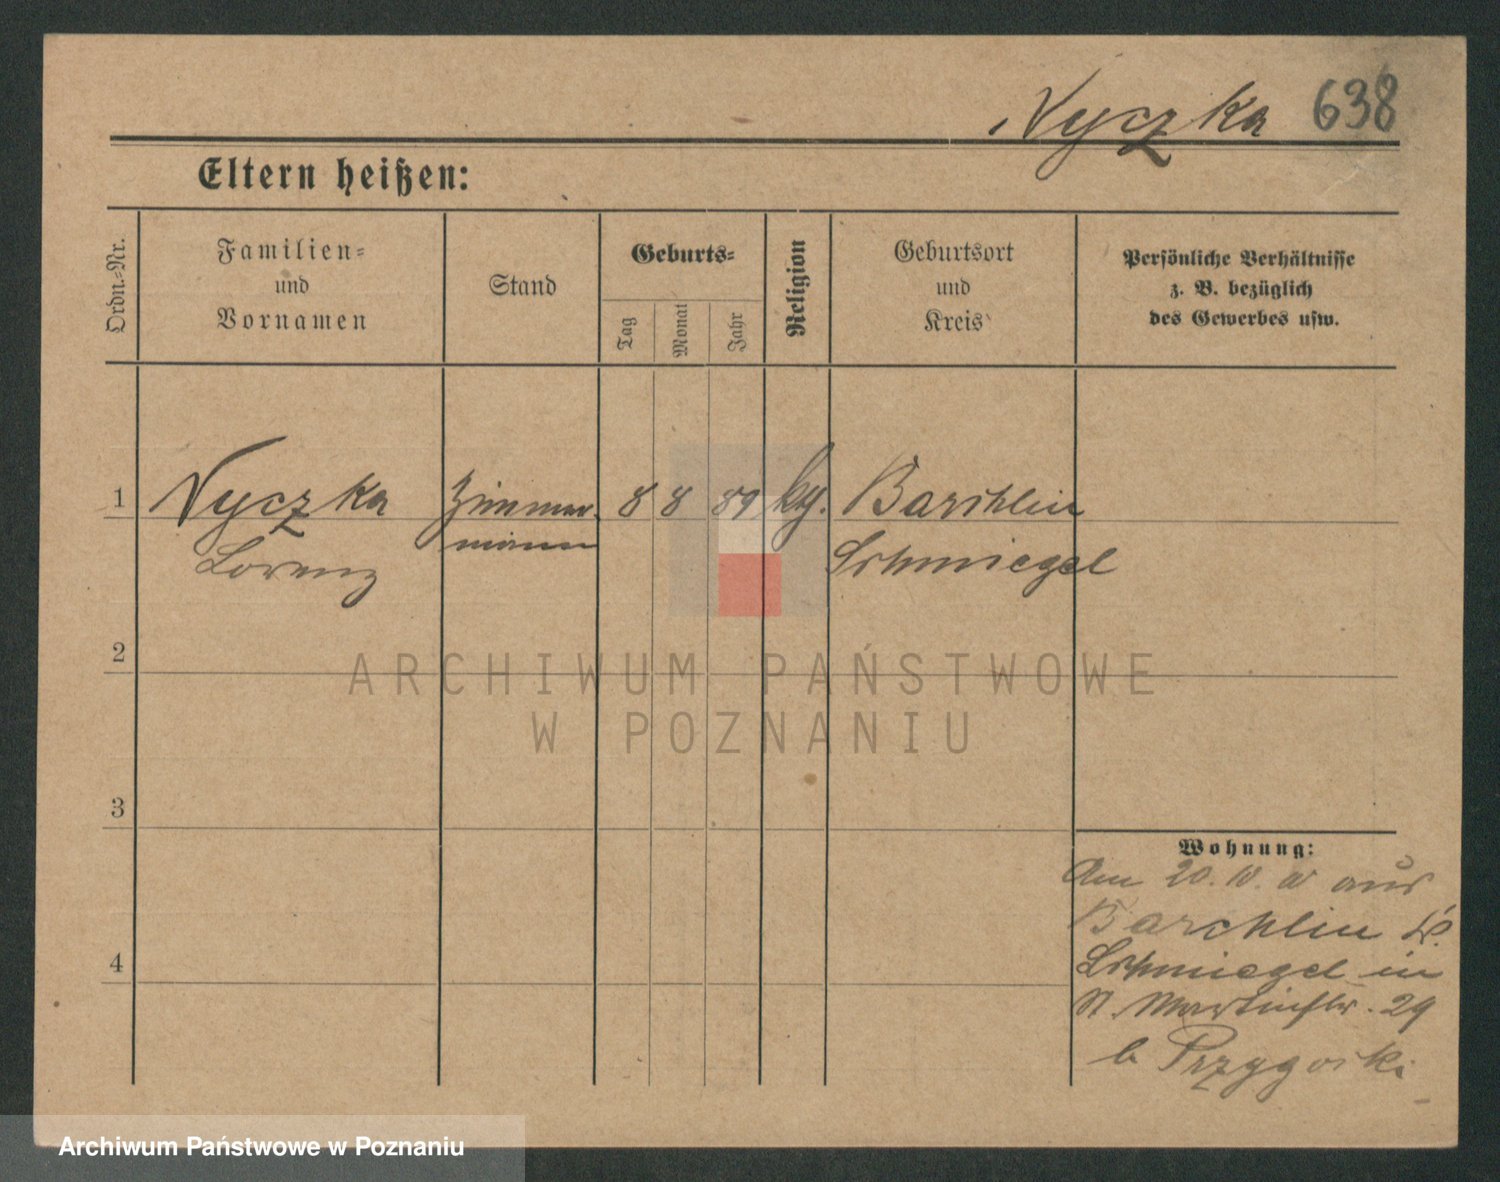 Nyczka 638
Eltern heißen:
Ordn.-Nr.
Familien-
und
Vornamen
Stand
Geburts-
Tag
Monat
Jahr
Religion
Geburtsort
und
Kreis
Persönliche Verhältnisse
z. B. bezüglich
des Gewerbes usw.
1 Nyczka Zimmer- 8 8 89 Barchlin
Lorenz mann Schmiegel
2
3
4
Wohnung:
Am 20. aus
Barchlin
Schmiegel in
St. Martinstr. 29
b Przygoski
ARCHIWUM PAŃSTWOWE
W POZNANIU
Archiwum Państwowe w Poznaniu